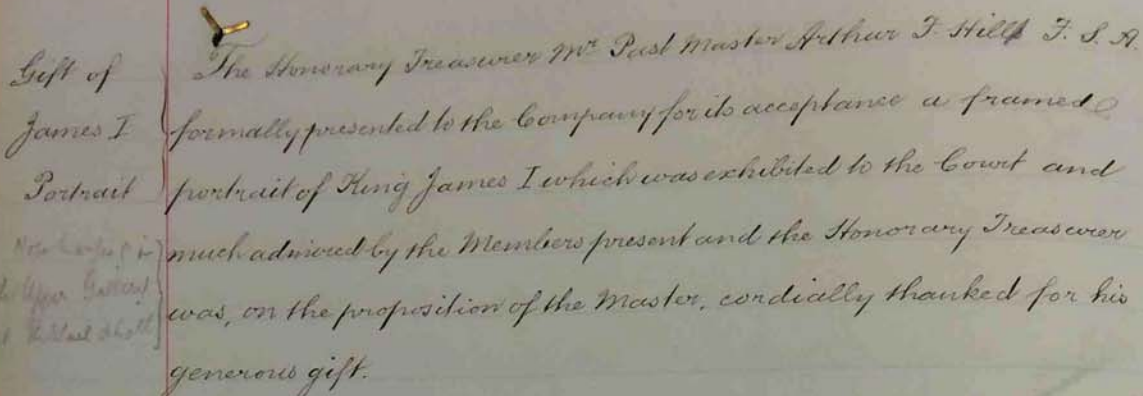 Gift of
James I
Portrait
The Honorary Treasurer Mr Past Master Arthur F. Hill F. S. A.
formally presented to the Company for its acceptance a framed
portrait of King James I which was exhibited to the Court and
much admired by the Members present and the Honorary Treasurer
was, on the proposition of the Master, cordially thanked for his
generous gift.
Upper Gallery